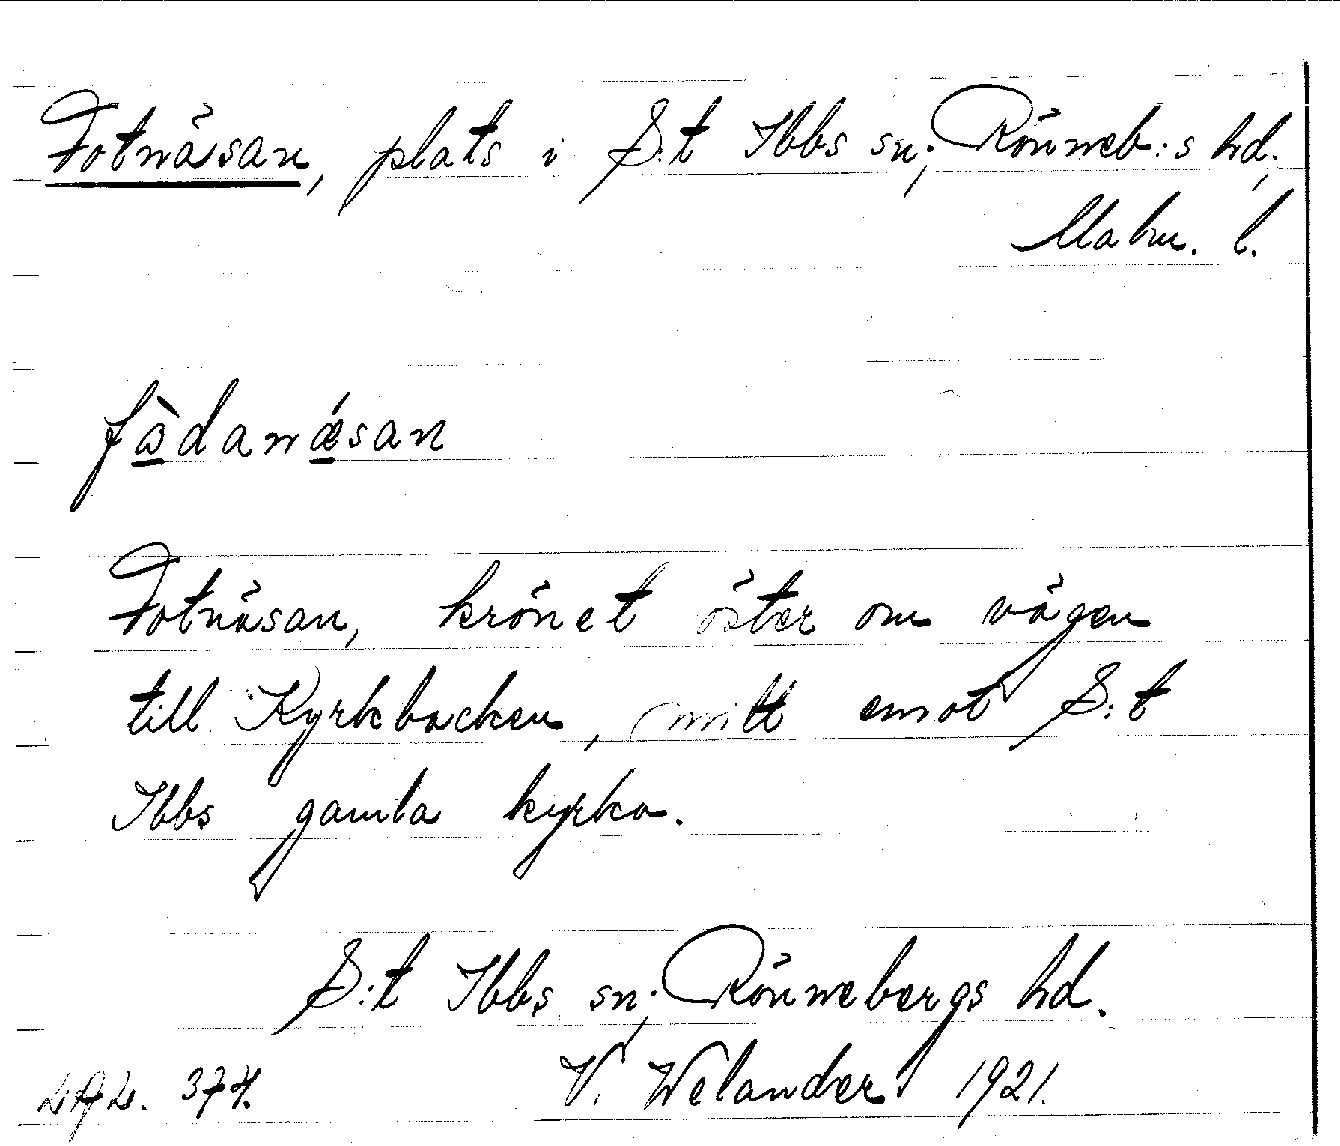 Fotnäsan, plats i S:t Ibbs sn; Rönneb:s hd,
Malm. l.
fòdanǽsan
Fotnäsan, krönet öster om vägen
till Kyrkbacken, mitt emot S:t
Ibbs gamla kyrka.
S:t Ibbs sn; Rönnebergs hd.
V. Welander 1921.